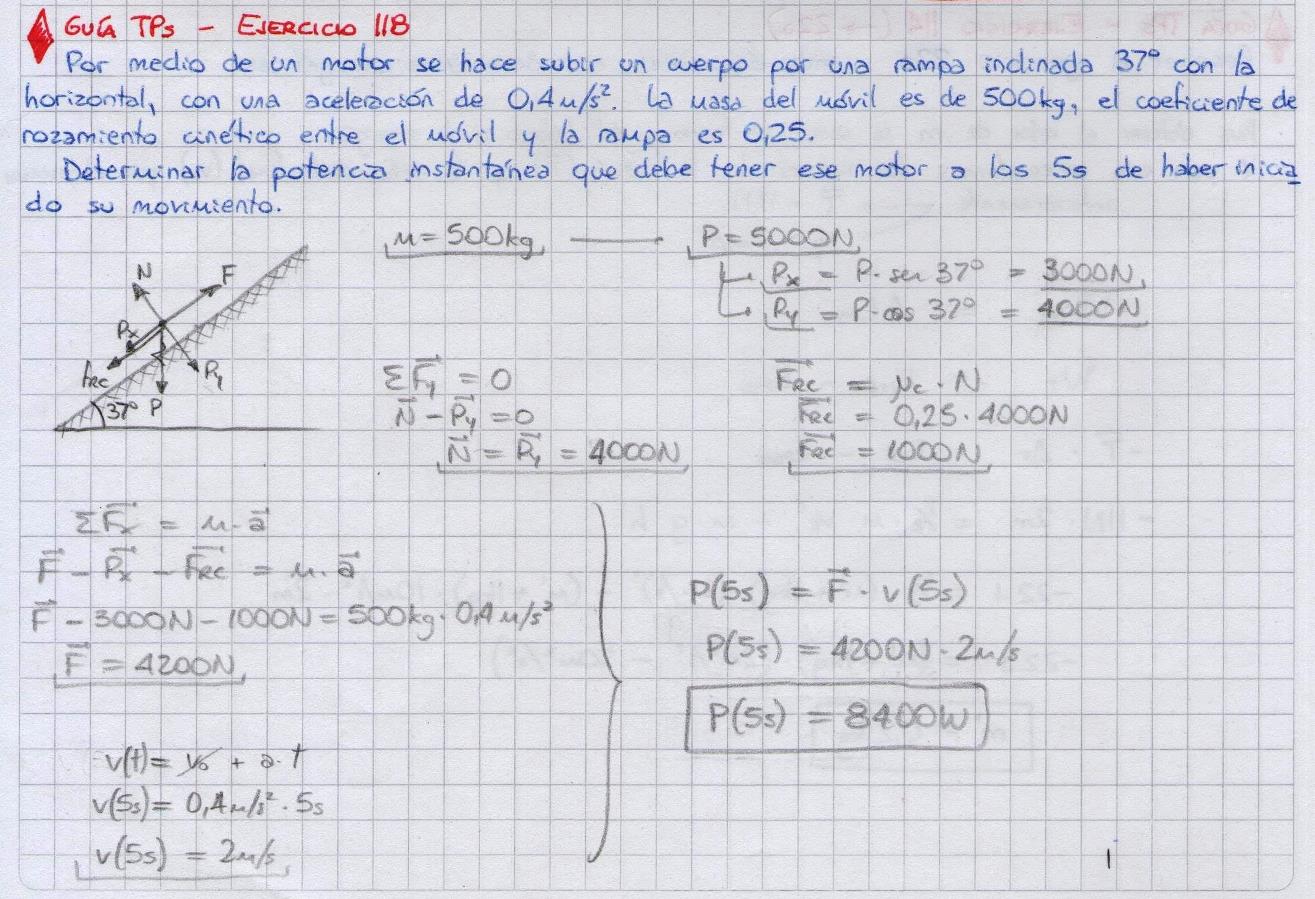 GUÍA TPs - EJERCICIO 118
Por medio de un motor se hace subir un cuerpo por una rampa inclinada 37° con la
horizontal, con una aceleración de 0,4m/s². La masa del móvil es de 500kg, el coeficiente de
rozamiento cinético entre el móvil y la rampa es 0,25.
Determinar la potencia instantánea que debe tener ese motor a los 5s de haber inicia
do su movimiento.
m = 500kg — P = 5000N
Px = P · sen 37° = 3000N
Py = P · cos 37° = 4000N
N
F
Px
Frc
Py
37°
P
ΣFy = 0
N - Py = 0
N = Py = 4000N
Frc = μc · N
Frc = 0,25 · 4000N
Frc = 1000N
ΣFx = m · a
F - Px - Frc = m · a
F - 3000N - 1000N = 500kg · 0,4 m/s²
F = 4200N
v(t) = v₀ + a · t
v(5s) = 0,4m/s² · 5s
v(5s) = 2m/s
P(5s) = F · v(5s)
P(5s) = 4200N · 2m/s
P(5s) = 8400W
1